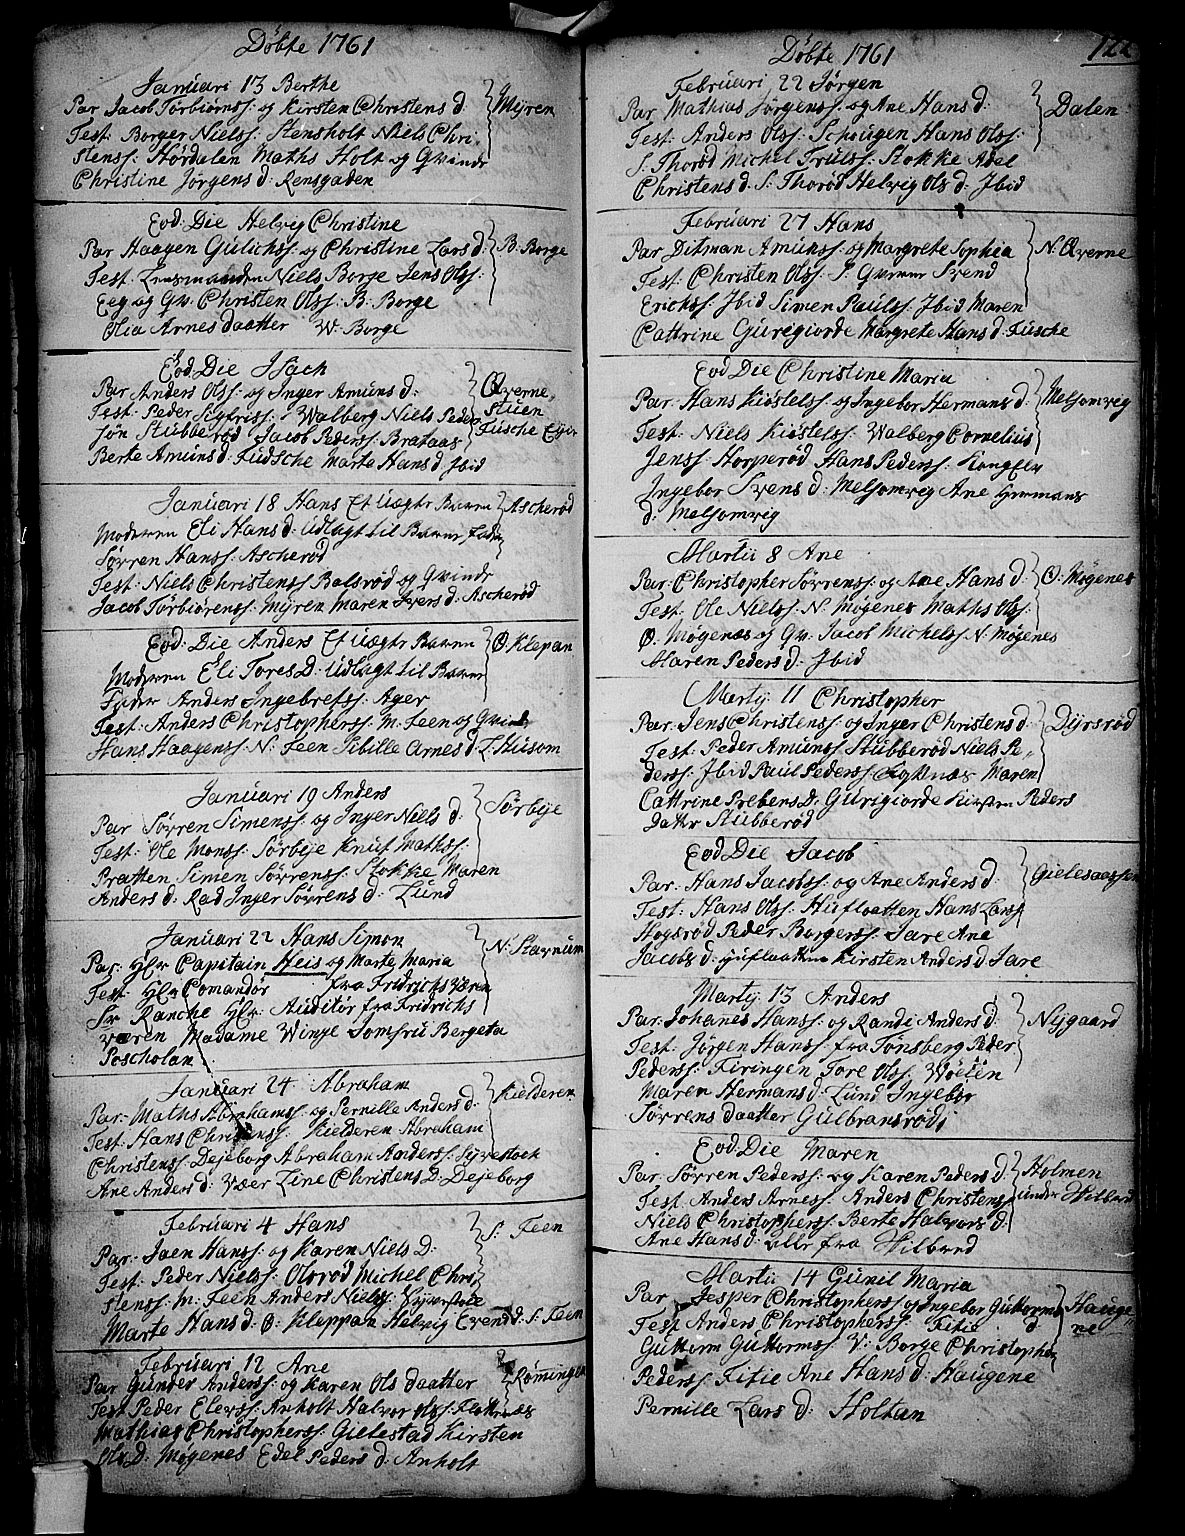 Döbte 1761
Januari 13 Berthe
Par Jacob Törbiörnss: og Kirsten Christens d: Myren
Test: Borger Nielss: Stensholt Niels Chri-
stenss: Hordalen Maths Holt og Qvinde
Christine Jörgens d: Rensgaden
Eod: Die Helvig Christine
Par Haagen Gulichss: og Christine Lars d: B: Borge
Test: Niels Borge Jens Olss:
Eeg og Qv: Christen Olss: B: Borge
Olia Arnes daatter W: Borge
Eod Die Isach
Par Anders Olss: og Inger Amuns d: Qverne-
Test: Peder Sigfriss: Walberg Niels Peder stuen
Jön Stubberöd Jacob Pederss: Brataas Fusche
Berte Amuns d: Fudsche Marte Hans d: Ibid
Januari 18 Hans Et Uægte Barn Ascheröd
Moderen Eli Hans d: Udlagt til Barne Fader
Sörren Hanss: Ascheröd
Test: Niels Christenss Balsröd og Qvinde
Jacob Törbiörenss: Myren Maren Ivers d: Ascheröd
Eod: Die Anders Et Uægte Barn Ø: Klepan
Moderen Eli Tores D: Udlagt til Barne
Fader Anders Ingebretss: Ager
Test: Anders Christopherss: M: Feen og Qvinde
Hans Haagenss: N: Feen Sibille Arnes d: L: Husom
Januari 19 Anders
Par Sörren Simenss: og Inger Niels d: Sörbye
Test: Ole Monss: Sörbye Knut Mathss:
Pratten Simen Sörrenss: Stokke Maren
Anders d: Rad Inger Sörrens d: Lund
Januari 22 Hans Simon
Par: Hr Capitain Heis og Marte Maria N: Stavnum
Test: Hr Comandör fra Fridrichsværen
Sr Ranche Hr: Auditör fra Fridrichs
væren Madame Winge Jomfru Bergeta
Poscholan
Januari 24 Abraham
Par: Maths Abrahamss: og Pernille Anders d: Kielderen
Test: Hans Christenss: Kielderen Abraham
Christenss: Dejeborg Abraham Anderss: Syrestock
Ane Anders d: Vær Line Christens D: Dejeborg
Februari 4 Hans
Par: Jaen Hanss: og Karen Niels D: S: Feen
Test: Peder Nielss: Olsröd Michel Chri-
stenss: M: Feen Anders Nielss:
Marte Hans d: Ø: Kleppan Helvig Evens d: S: Feen
Februari 12 Ane
Par Gunder Anderss: og Karen Ols daatter Römingen
Test Peder Elerss: Anholt Halvor Olss: Flottnæs
Mathias Christopherss: Gielestad Kirsten
Ols D: Møgenes Edel Peders d: Anholt
122
Döbte 1761
Februari 22 Jörgen
Par Mathias Jörgenss: og Ane Hans d: Dalen
Test: Anders Olss: Schougen Hans Olss:
S: Thoröd Michel Trulss: Stokke Adel
Christens d: S: Thoröd Helvig Ols d: Ibid
Februari 27 Hans
Par Ditman Amunss: og Margrete Sophia N: Qverne
Test: Christen Olss: S: Qverne Svend
Erichss: Ibid Simen Paulss: Ibid Maren
Cattrine Guregiorde Margrete Hans d: Fusche
Eod Die Christine Maria
Par: Hans Kiöstelss: og Ingebor Hermans d: Melsomvig
Test: Niels Kiöstelss: Walberg Cornelius
Jenss: Horperöd Hans Pederss: Kongelv
Ingebor Svens d: Melsomvig Ane Hermans
d: Melsomvig
Martii 8 Ane
Par: Christopher Sörrenss: og Ane Hans d: Ø: Møgenes
Test: Ole Nielss: N: Mogenes Maths Olss:
Ø: Møgenæs og Qv: Jacob Michelss N: Møgenes
Maren Peders d: Ibid
Marty 11 Christopher
Par: Jens Christenss: og Inger Christens d: Dyrsröd
Test: Peder Amunss Stubberöd Niels Pe-
derss: Ibid Paul Pederss: Maren
Cattrine Prebens D: Gurigiorde Kirsten Peders
Datter Stubberöd
Eod Die Jacob
Par: Hans Jacobss: og Ane Anders d: Gielesaassen
Test: Hans Olss: Hufloatten Hans Larss
Hogsröd Peder Borgerss: Jare Ane
Jacobs d: Hufloatten Kirsten Anders d Jare
Marty 13 Anders
Par: Johanes Hanss: og Randi Anders d: Nygaard
Test: Jörgen Hanss: fra Tønsberg Peder
Pederss: Firingen Tore Olss:
Maren Hermans d: Lund Ingebor
Sörrens daatter Gulbransröd
Eod Die Maren
Par: Sörren Pederss: og Karen Peders d: Holmen
Test: Anders Arness: Anders Christenss: under Hilbred
Niels Christopherss: Berte Halvors d:
Ane Hans d: alle fra Hilbred
Martii 14 Gunil Maria
Par Jesper Christopherss og Ingebor Guttorms d: Hauge-
Test Anders Christopherss: Fitie ne
Guttorm Guttormss: V: Borge Christopher
Pederss: Fitie Ane Hans d: Haugene
Pernille Lars d: Holtan